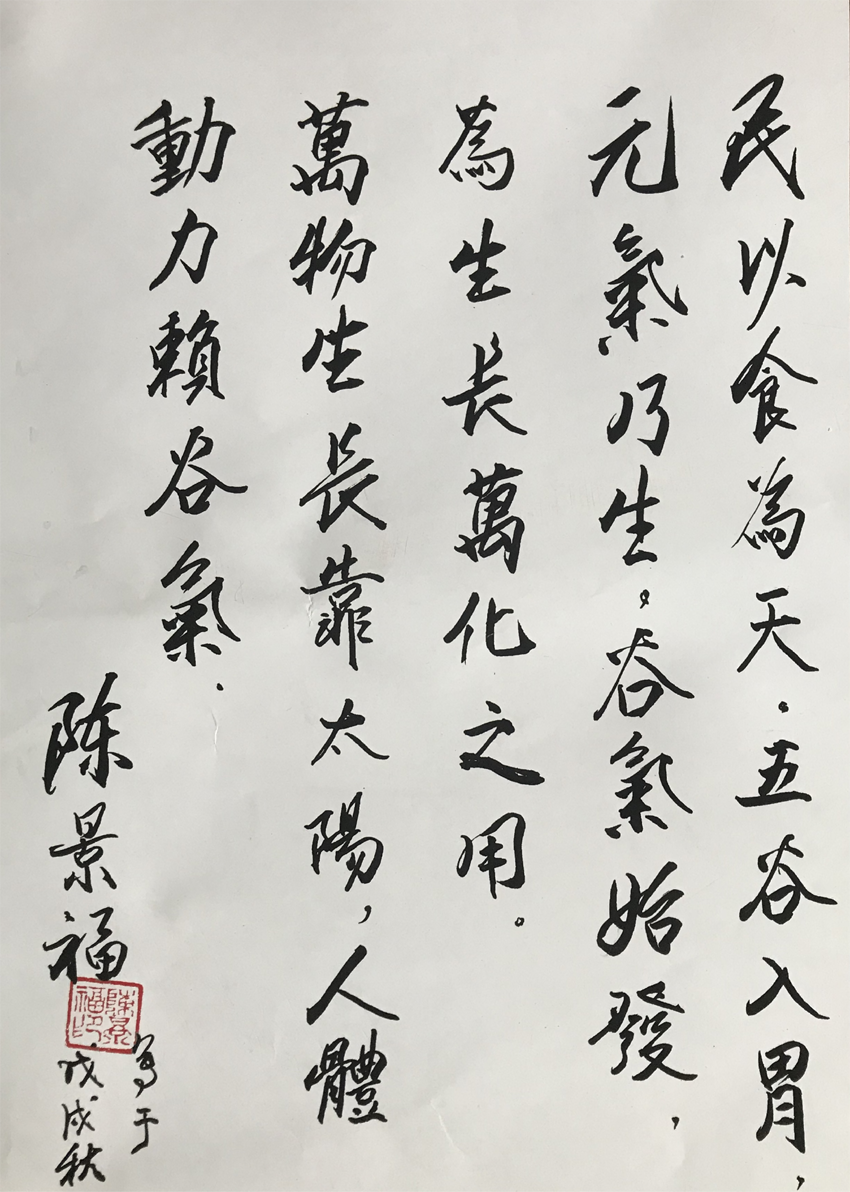 民以食為天．五谷入胃，
元氣乃生。谷氣始發，
為生長萬化之用。
萬物生長靠太陽，人體
動力賴谷氣．
陈景福
陳景
福印
写于
戊戌秋